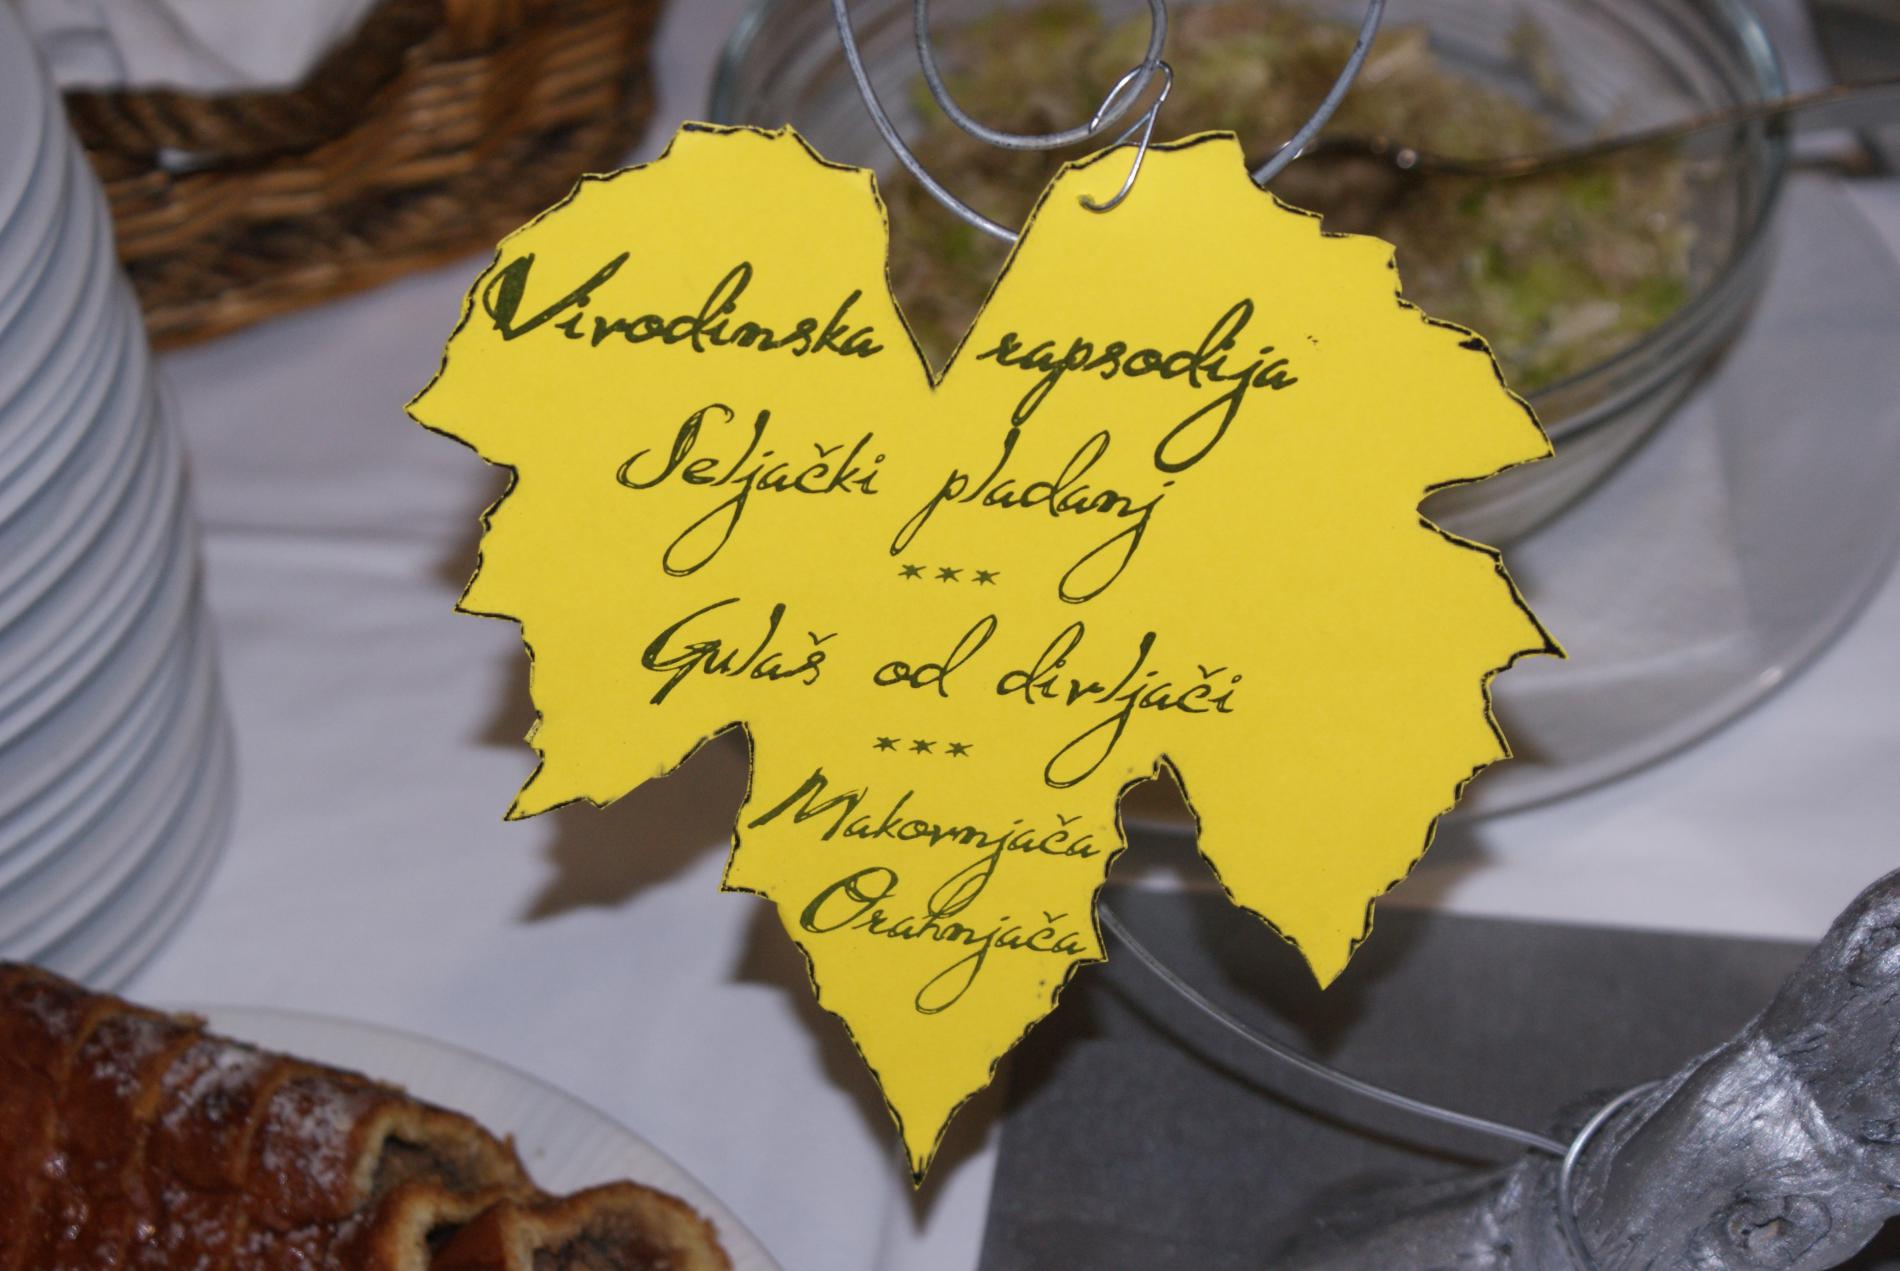 Virodinska rapsodija
Seljački pladanj
***
Gulaš od divljači
***
Makovnjača
Orahnjača